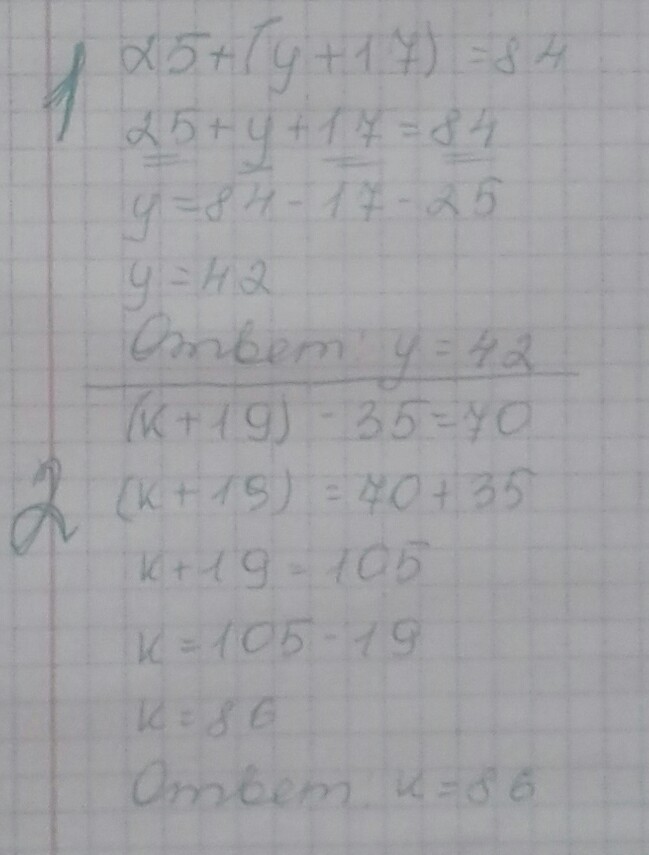 1 25+(y+17)=84
25+y+17=84
y=84-17-25
y=42
Ответ: y=42
2 (к+19)-35=70
(к+19)=70+35
к+19=105
к=105-19
к=86
Ответ к=86